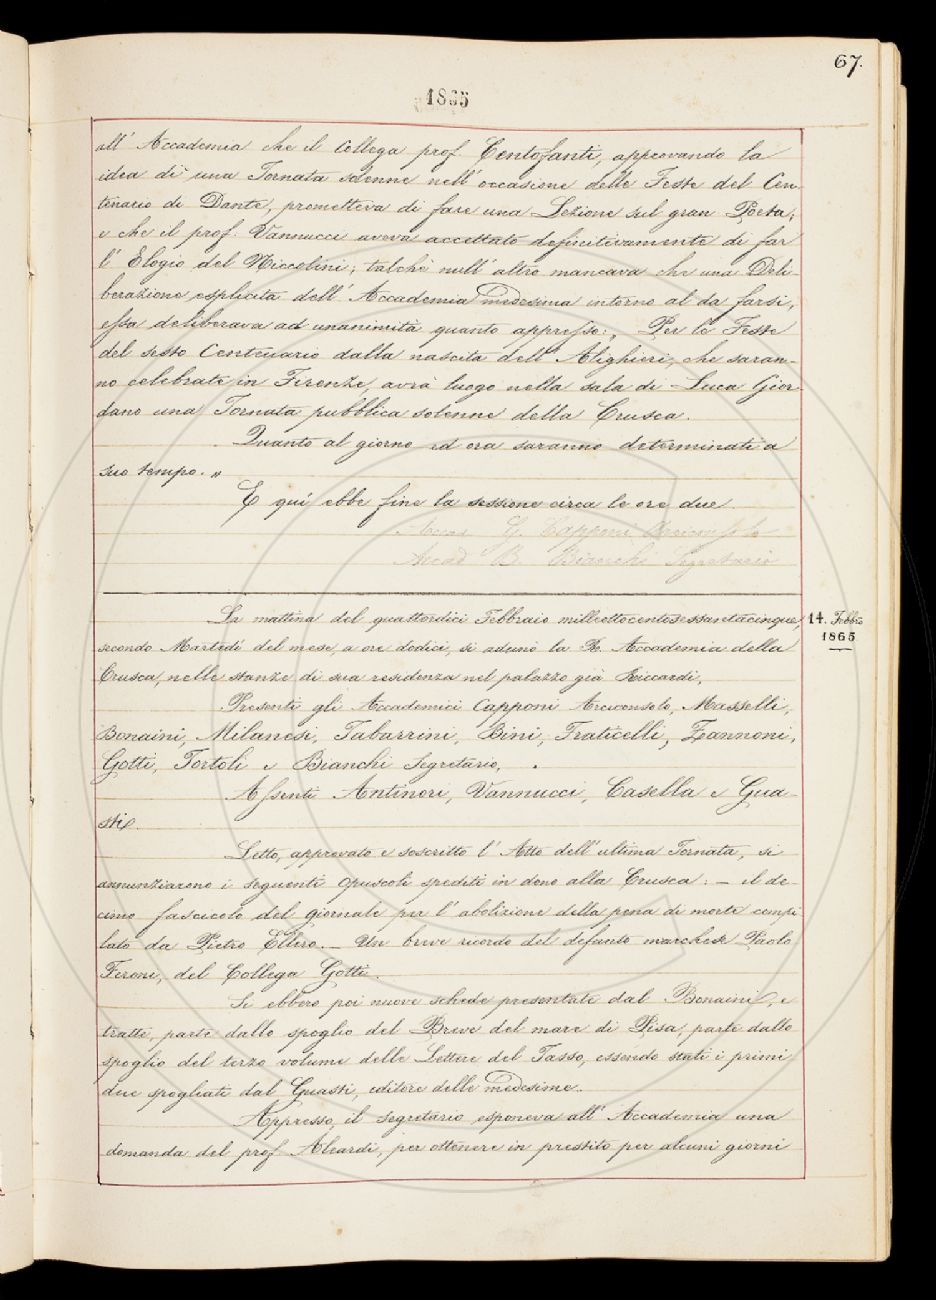 67.
1865
all' Accademia che il Collega prof. Centofanti, approvando la
idea di una Tornata solenne nell'occasione delle Feste del Cen-
tenario di Dante, prometteva di fare una Lezione sul gran Poeta;
e che il prof. Vannucci aveva accettato definitivamente di far
l'Elogio del Niccolini; talchè null'altro mancava che una Deli-
berazione esplicita dell'Accademia medesima intorno al da farsi,
essa deliberava ad unanimità quanto appresso: „ Per le Feste
del sesto Centenario dalla nascita dell'Alighieri, che saran-
no celebrate in Firenze, avrà luogo nella sala di Luca Gior-
dano una Tornata pubblica solenne della Crusca.
Quanto al giorno ed ora saranno determinati a
suo tempo. „
E quì ebbe fine la sessione circa le ore due.
Accad G. Capponi Arciconsolo
Accad B. Bianchi Segretario
14. Febbro
1865
La mattina del quattordici Febbraio milleottocentosessantacinque,
secondo Martedì del mese, a ore dodici, si adunò la R. Accademia della
Crusca, nelle stanze di sua residenza nel palazzo già Riccardi,
Presenti gli Accademici Capponi Arciconsolo, Masselli,
Bonaini, Milanesi, Tabarrini, Bini, Fraticelli, Zannoni,
Gotti, Tortoli e Bianchi Segretario.
Assenti Antinori, Vannucci, Casella e Gua-
sti.
Letto, approvato e soscritto l'Atto dell'ultima Tornata, si
annunziarono i seguenti opuscoli spediti in dono alla Crusca: – il de-
cimo fascicolo del giornale per l'abolizione della pena di morte compi-
lato da Pietro Ellero. – Un breve ricordo del defunto marchese Paolo
Feroni, del Collega Gotti.
Si ebbero poi nuove schede presentate dal Bonaini, e
tratte, parte dallo spoglio del Breve del mare di Pisa, parte dallo
spoglio del terzo volume delle Lettere del Tasso, essendo stati i primi
due spogliati dal Guasti, editore delle medesime.
Appresso, il segretario esponeva all'Accademia una
domanda del prof. Aleardi, per ottenere in prestito per alcuni giorni